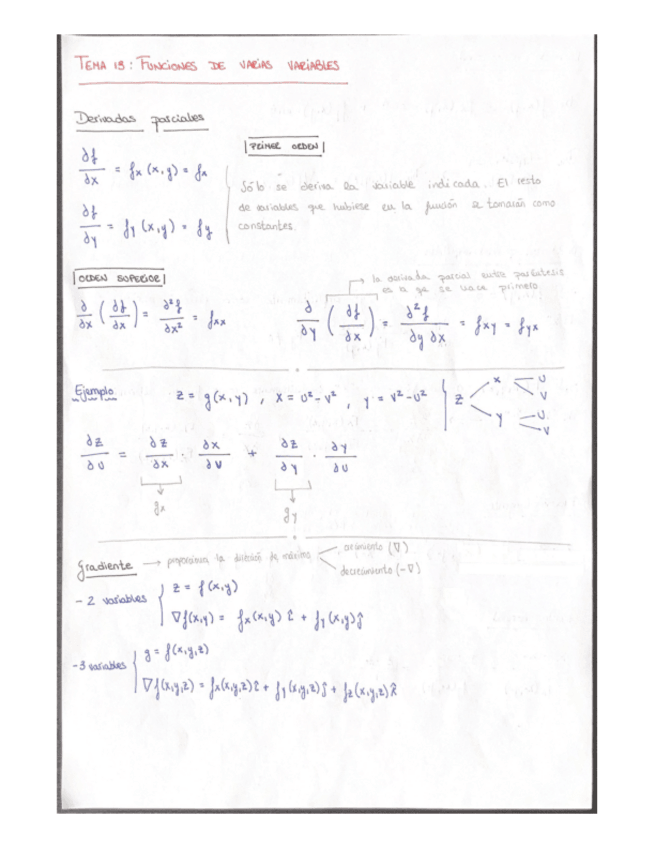 TEMA 13: FUNCIONES DE VARIAS VARIABLES
Derivadas parciales
PRIMER ORDEN
∂f/∂x = fx (x,y) = fx
∂f/∂y = fy (x,y) = fy
Sólo se deriva la variable indicada. El resto
de variables que hubiese en la función se tomarán como
constantes.
ORDEN SUPERIOR
la derivada parcial entre paréntesis
es la que se hace primero
∂/∂x (∂f/∂x) = ∂²f/∂x² = fxx
∂/∂y (∂f/∂x) = ∂²f/∂y ∂x = fxy = fyx
Ejemplo
z = g(x,y) , x = u²-v² , y = v²-u²
z x u v y u v
∂z/∂u = ∂z/∂x · ∂x/∂v + ∂z/∂y · ∂y/∂u
gx gy
Gradiente → proporciona la dirección de máximo
crecimiento (∇)
decrecimiento (-∇)
- 2 variables
z = f(x,y)
∇f(x,y) = fx(x,y) î + fy(x,y) ĵ
- 3 variables
g = f(x,y,z)
∇f(x,y,z) = fx(x,y,z) î + fy(x,y,z) ĵ + fz(x,y,z) k̂